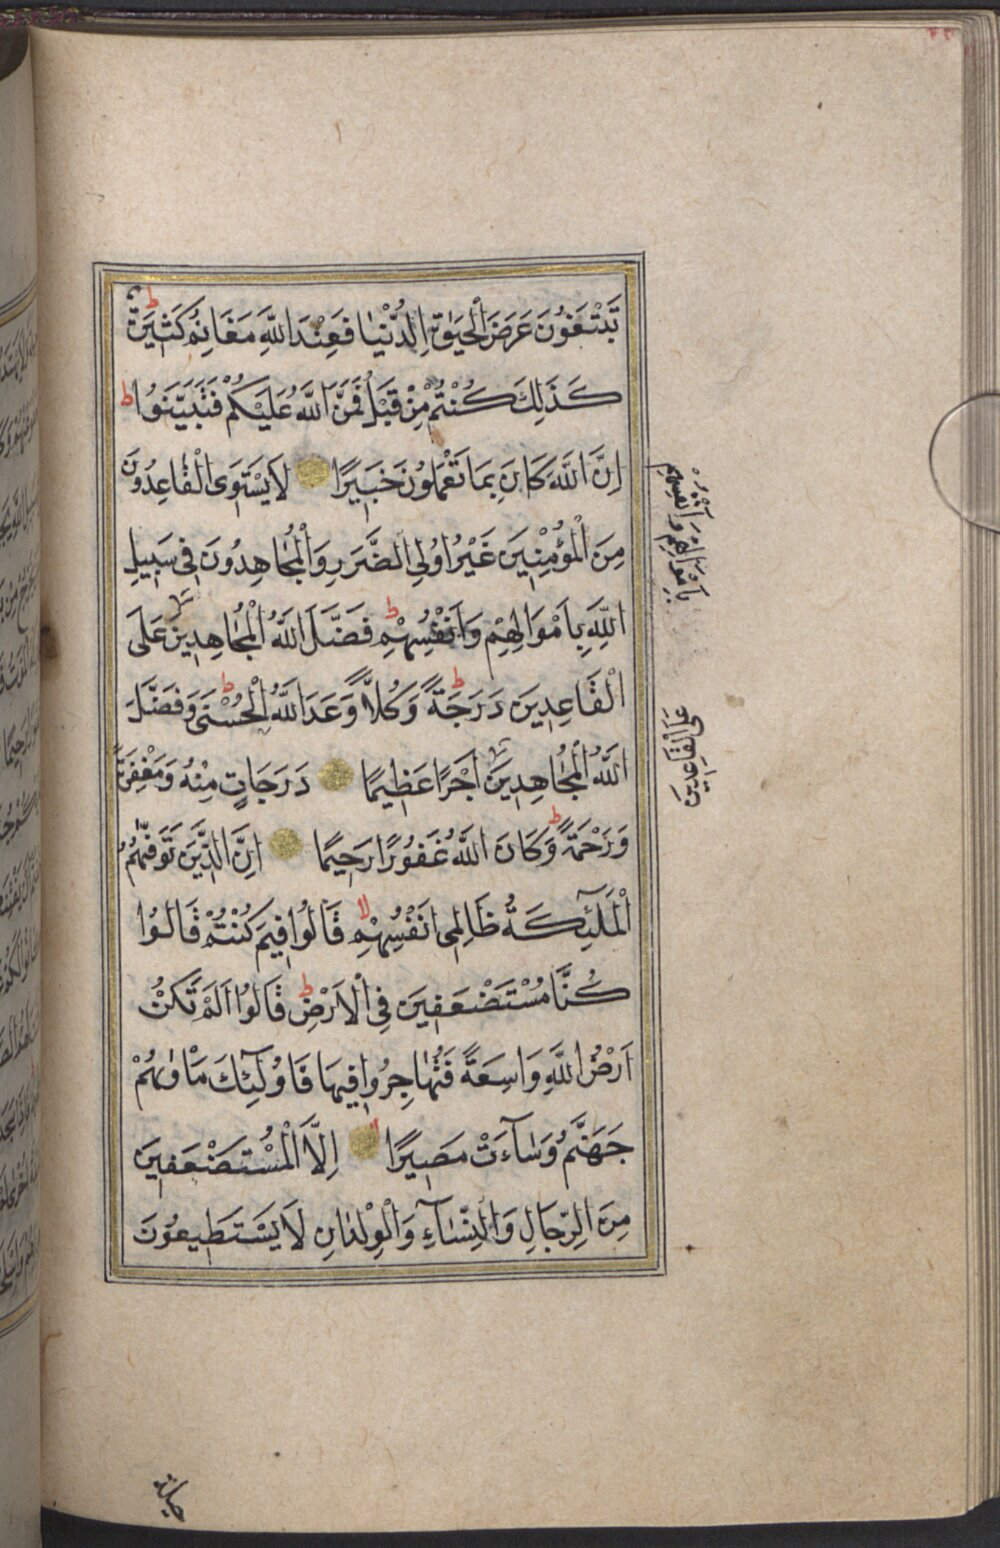 تَبْتَغُونَ عَرَضَ الْحَيٰوةِ الدُّنْيَا فَعِنْدَ اللَّهِ مَغَانِمُ كَثِيرَةٌ ط
كَذَلِكَ كُنْتُمْ مِنْ قَبْلُ فَمَنَّ اللَّهُ عَلَيْكُمْ فَتَبَيَّنُوا ط
اِنَّ اللَّهَ كَانَ بِمَا تَعْمَلُونَ خَبِيرًا لَا يَسْتَوِى الْقَاعِدُونَ
مِنَ الْمُؤْمِنِينَ غَيْرُ اُولِى الضَّرَرِ وَالْمُجَاهِدُونَ فِى سَبِيلِ
اللَّهِ بِاَمْوَالِهِمْ وَاَنْفُسِهِمْ ط فَضَّلَ اللَّهُ الْمُجَاهِدِينَ عَلَى
الْقَاعِدِينَ دَرَجَةً ط وَكُلًّا وَعَدَ اللَّهُ الْحُسْنَى ط وَفَضَّلَ
اللَّهُ الْمُجَاهِدِينَ اَجْرًا عَظِيمًا دَرَجَاتٍ مِنْهُ وَمَغْفِرَةً
وَرَحْمَةً ط وَكَانَ اللَّهُ غَفُورًا رَحِيمًا اِنَّ الَّذِينَ تَوَفّٰيهُمُ
الْمَلٰٓئِكَةُ ظَالِمِى اَنْفُسِهِمْ لا قَالُوا فِيمَ كُنْتُمْ قَالُوا
كُنَّا مُسْتَضْعَفِينَ فِى الْاَرْضِ ط قَالُوا اَلَمْ تَكُنْ
اَرْضُ اللَّهِ وَاسِعَةً فَتُهَاجِرُوا فِيهَا فَاُولٰٓئِكَ مَأْوٰيهُمْ
جَهَنَّمُ وَسَآءَتْ مَصِيرًا لا اِلَّا الْمُسْتَضْعَفِينَ
مِنَ الرِّجَالِ وَالنِّسَآءِ وَالْوِلْدَانِ لَا يَسْتَطِيعُونَ
بِاَمْوَالِهِمْ وَاَنْفُسِهِمْ
عَلَى الْقَاعِدِينَ
حيلة